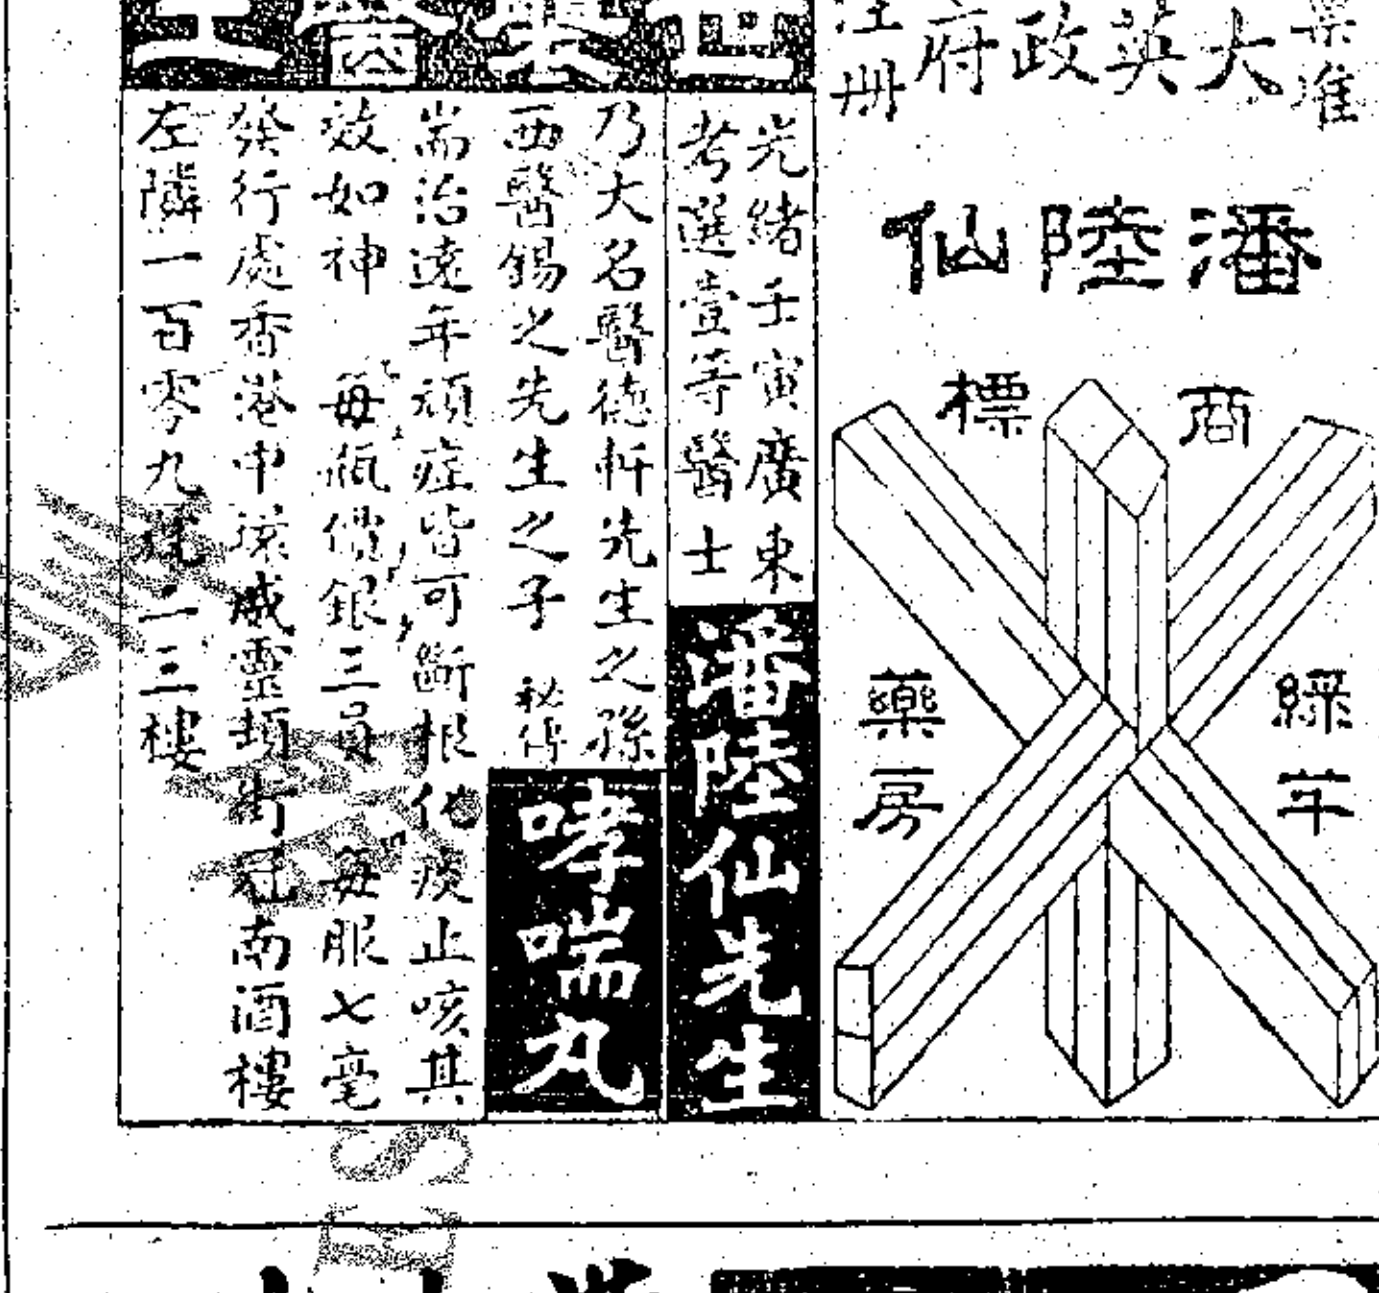 大英政府
註冊
潘陸仙
商標
綠竿
藥房
光緒壬寅廣東
考選壹等醫士
潘陸仙先生
乃大名醫德軒先生之孫
西醫錫之先生之子 祕傳
哮喘丸
耑治遠年頑症皆可斷根化痰止咳其
效如神 每瓶價銀三員 每服七毫
發行處香港中環威靈頓街冠南酒樓
左隣一百零九號二三樓